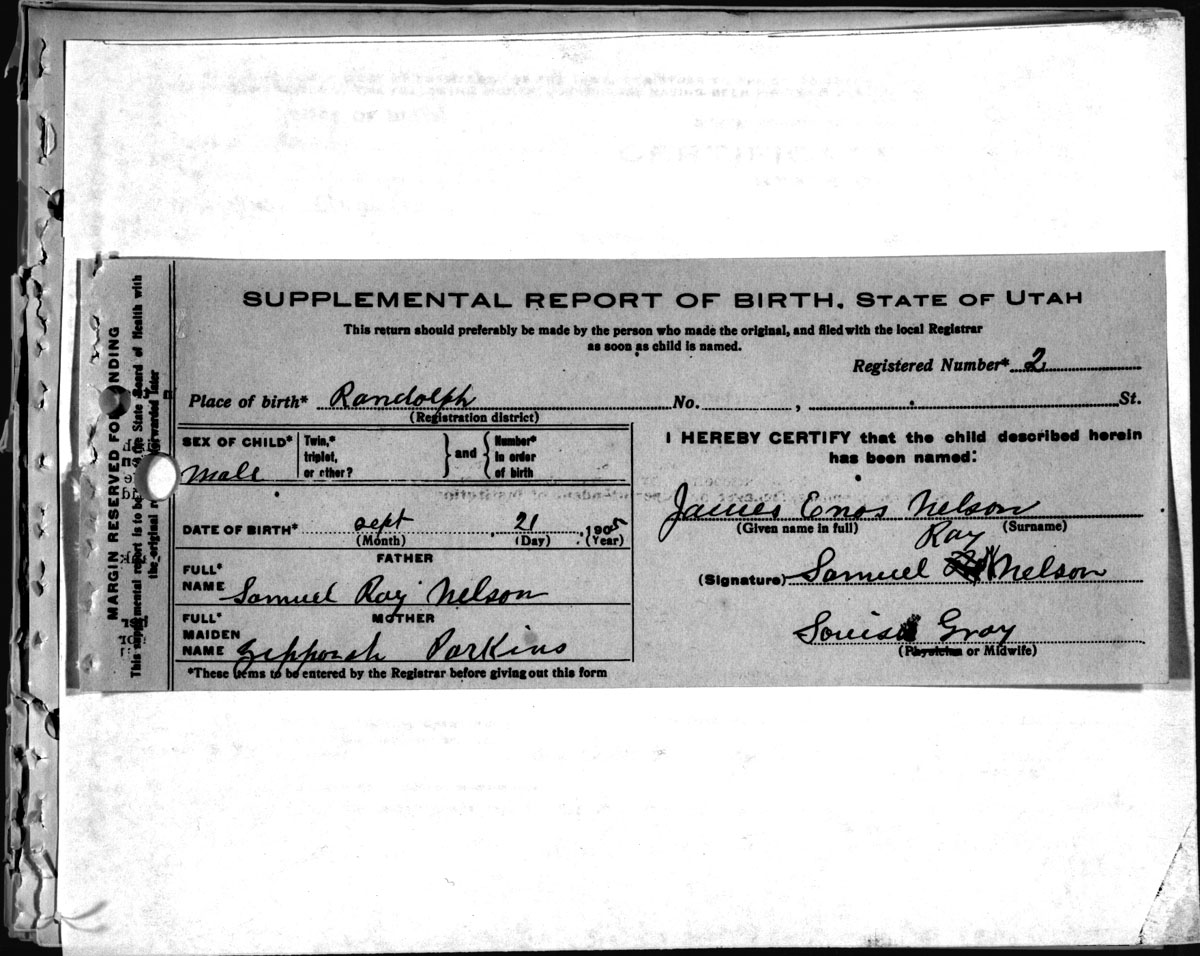 SUPPLEMENTAL REPORT OF BIRTH. STATE OF UTAH
This return should preferably be made by the person who made the original, and filed with the local Registrar
as soon as child is named.
Registered Number* 2
Place of birth* Randolph No. , St.
(Registration district)
SEX OF CHILD* Male
Twin,* triplet, or other? } and { Number* in order of birth
DATE OF BIRTH* Sept 21 1905
(Month) (Day) (Year)
FATHER
FULL* NAME Samuel Ray Nelson
MOTHER
FULL* MAIDEN NAME Zipporah Parkins
*These items to be entered by the Registrar before giving out this form
I HEREBY CERTIFY that the child described herein
has been named:
James Enos Nelson
(Given name in full) (Surname)
Ray
(Signature) Samuel Nelson
Louisa Gray
(Physician or Midwife)
MARGIN RESERVED FO NDING
This supplemental report is to be the State Board of Health with
the original r rwarded later